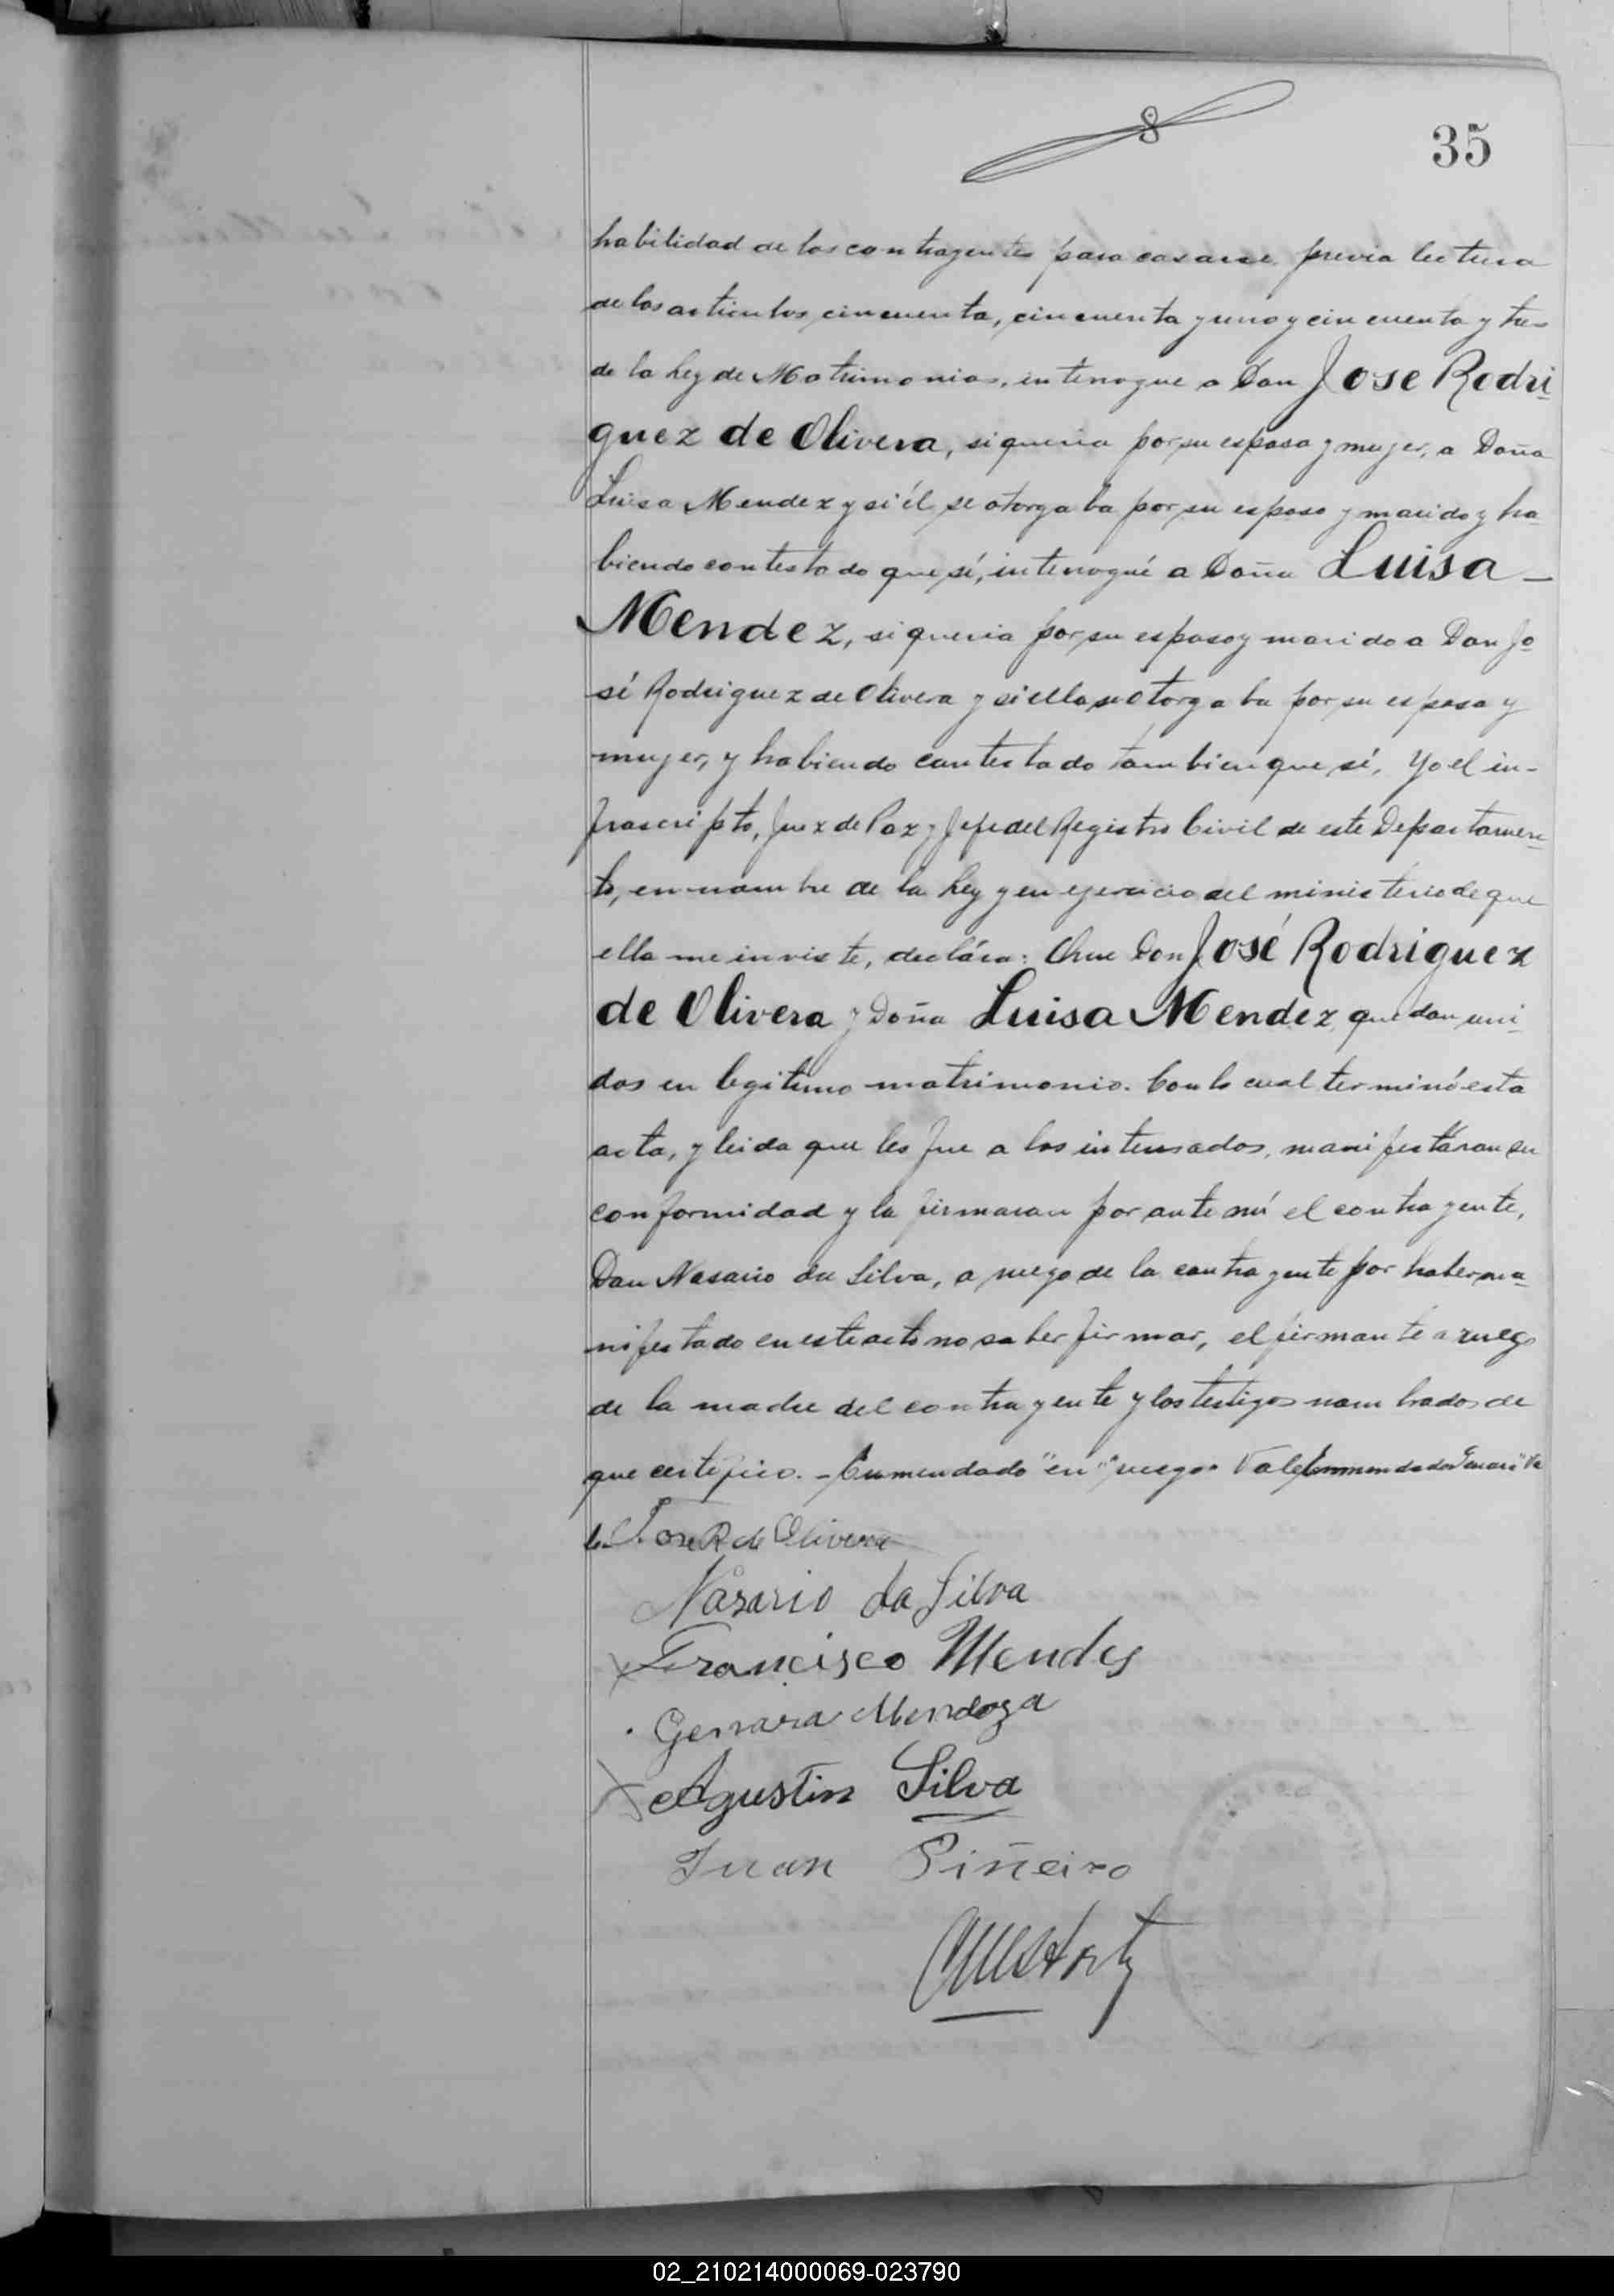 35
habilidad de los contrayentes para casarse previa lectura
de los articulos cincuenta, cincuenta y uno y cincuenta y tres
de la Ley de Matrimonios, interrogue a Don Jose Rodri
guez de Olivera, si queria por su esposa y mujer, a Doña
Luisa Mendez y si él se otorgaba por su esposo y marido y ha
biendo contestado que sí, interrogué a Doña Luisa -
Mendez, si queria por su esposo y marido a Don Jo
sé Rodriguez de Olivera y si ella se otorgaba por su esposa y
mujer, y habiendo contestado tambien que sí, Yo el in-
frascripto, Juez de Paz y Jefe del Registro Civil de este Departamen-
to, en nombre de la Ley y en ejercicio del ministerio de que
ella me inviste, declára: Que Don José Rodriguez
de Olivera y Doña Luisa Mendez quedan uni
dos en legitimo matrimonio. Con lo cual terminó esta
acta, y leida que les fue a los interesados, manifestáron su
conformidad y la firmaron por ante mí el contrayente,
Don Nasario da Silva, a ruego de la contrayente por haber ma-
nifestado en este acto no saber firmar, el firmante a ruego
de la madre del contrayente y los testigos nombrados de
que certifico. - Enmendado "en" "ruego" Vale Enmendado "Genara" Va
le José R de Olivera
Nazario da Silva
Francisco Mendes
Genara Mendoza
Agustin Silva
Juan Piñeiro
02_210214000069-023790